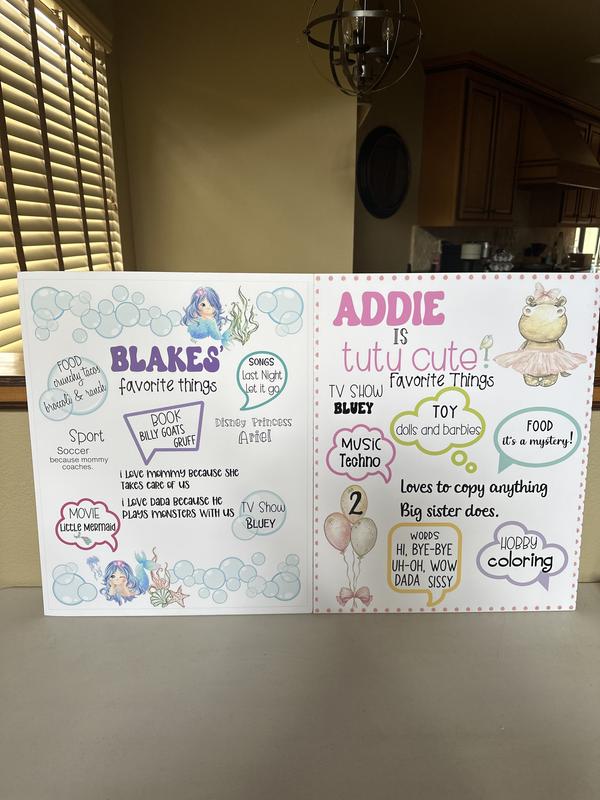 BLAKES'
favorite things
FOOD
crunchy tacos
broccoli & ranch
SONGS
Last Night
Let it go
BOOK
BILLY GOATS
GRUFF
Disney Princess
Ariel
Sport
Soccer
because mommy
coaches.
i love mommy because she
takes care of us
i love dada because he
plays monsters with us
MOVIE
Little Mermaid
TV Show
BLUEY
ADDIE
IS
tutu cute!
Favorite Things
TV SHOW
BLUEY
TOY
dolls and barbies
FOOD
it's a mystery!
MUSIC
Techno
Loves to copy anything
Big sister does.
2
WORDS
HI, BYE-BYE
UH-OH, WOW
DADA SISSY
HOBBY
coloring